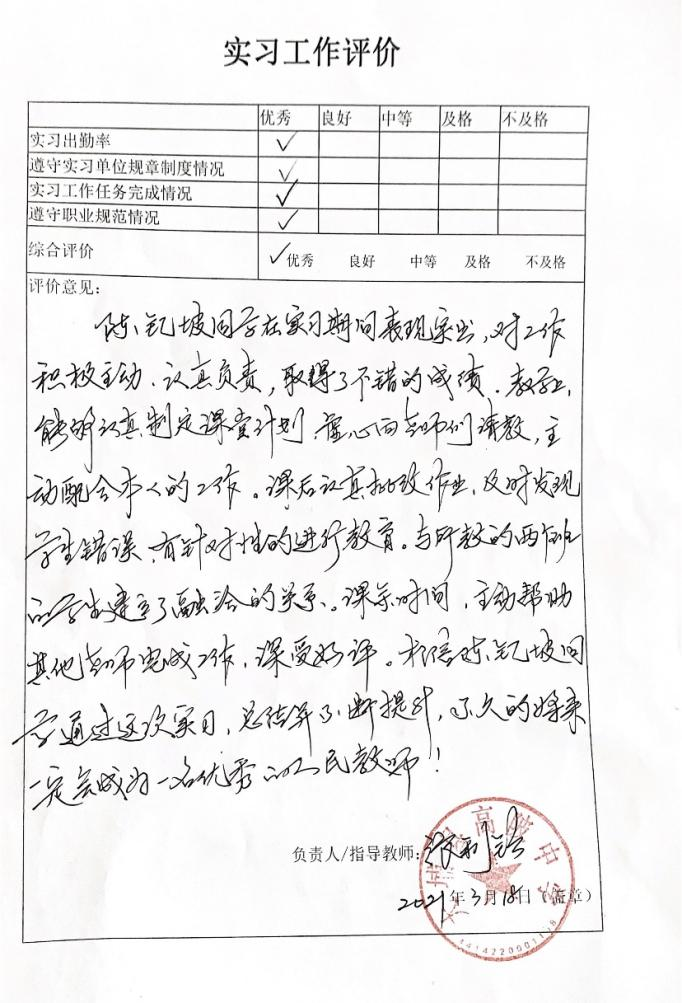 实习工作评价
优秀 良好 中等 及格 不及格
实习出勤率 ✓
遵守实习单位规章制度情况 ✓
实习工作任务完成情况 ✓
遵守职业规范情况 ✓
综合评价 ✓优秀 良好 中等 及格 不及格
评价意见:
陈钇坡同学在实习期间表现突出,对工作
积极主动、认真负责,取得了不错的成绩。教学上,
能够认真制定课堂计划,虚心向老师们请教,主
动配合本人的工作。课后认真批改作业,及时发现
学生错误,有针对性的进行教育。与所教的两个班
的学生建立了融洽的关系。课余时间,主动帮助
其他老师完成工作,深受好评。相信陈钇坡同
学通过这次实习,总结并不断提升,不久的将来
一定会成为一名优秀的人民教师!
负责人/指导教师:
2021年3月18日(盖章)
高级中学
1414220001118